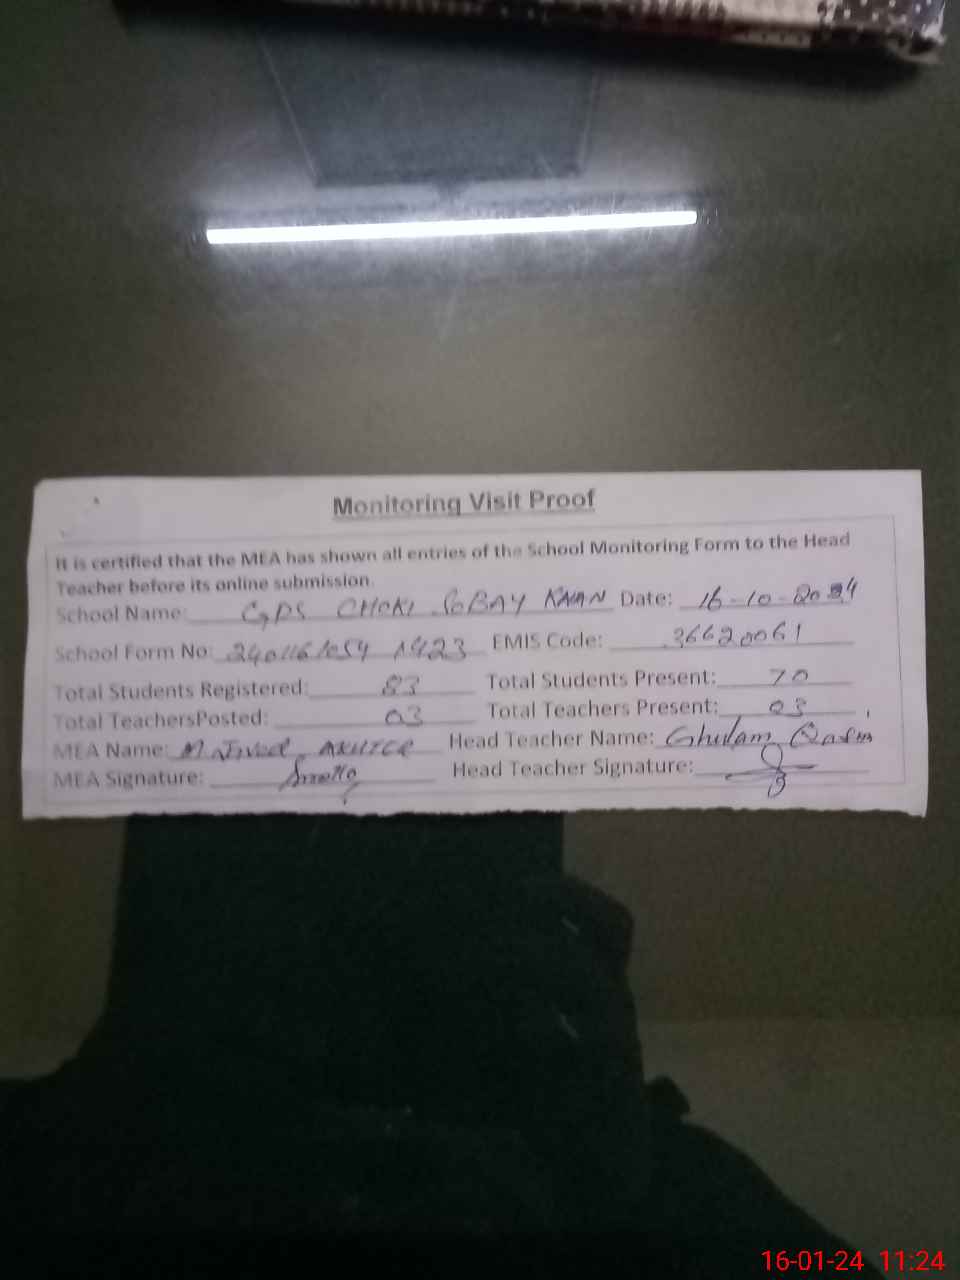 Monitoring Visit Proof
It is certified that the MEA has shown all entries of the School Monitoring Form to the Head
Teacher before its online submission.
School Name: GPS CHOKI SOBAY KHAN Date: 16-10-2024
School Form No: EMIS Code: 36620061
Total Students Registered: 83 Total Students Present: 70
Total TeachersPosted: 03 Total Teachers Present: 03
MEA Name: M Head Teacher Name: Ghulam Qasim
MEA Signature: Head Teacher Signature:
16-01-24 11:24